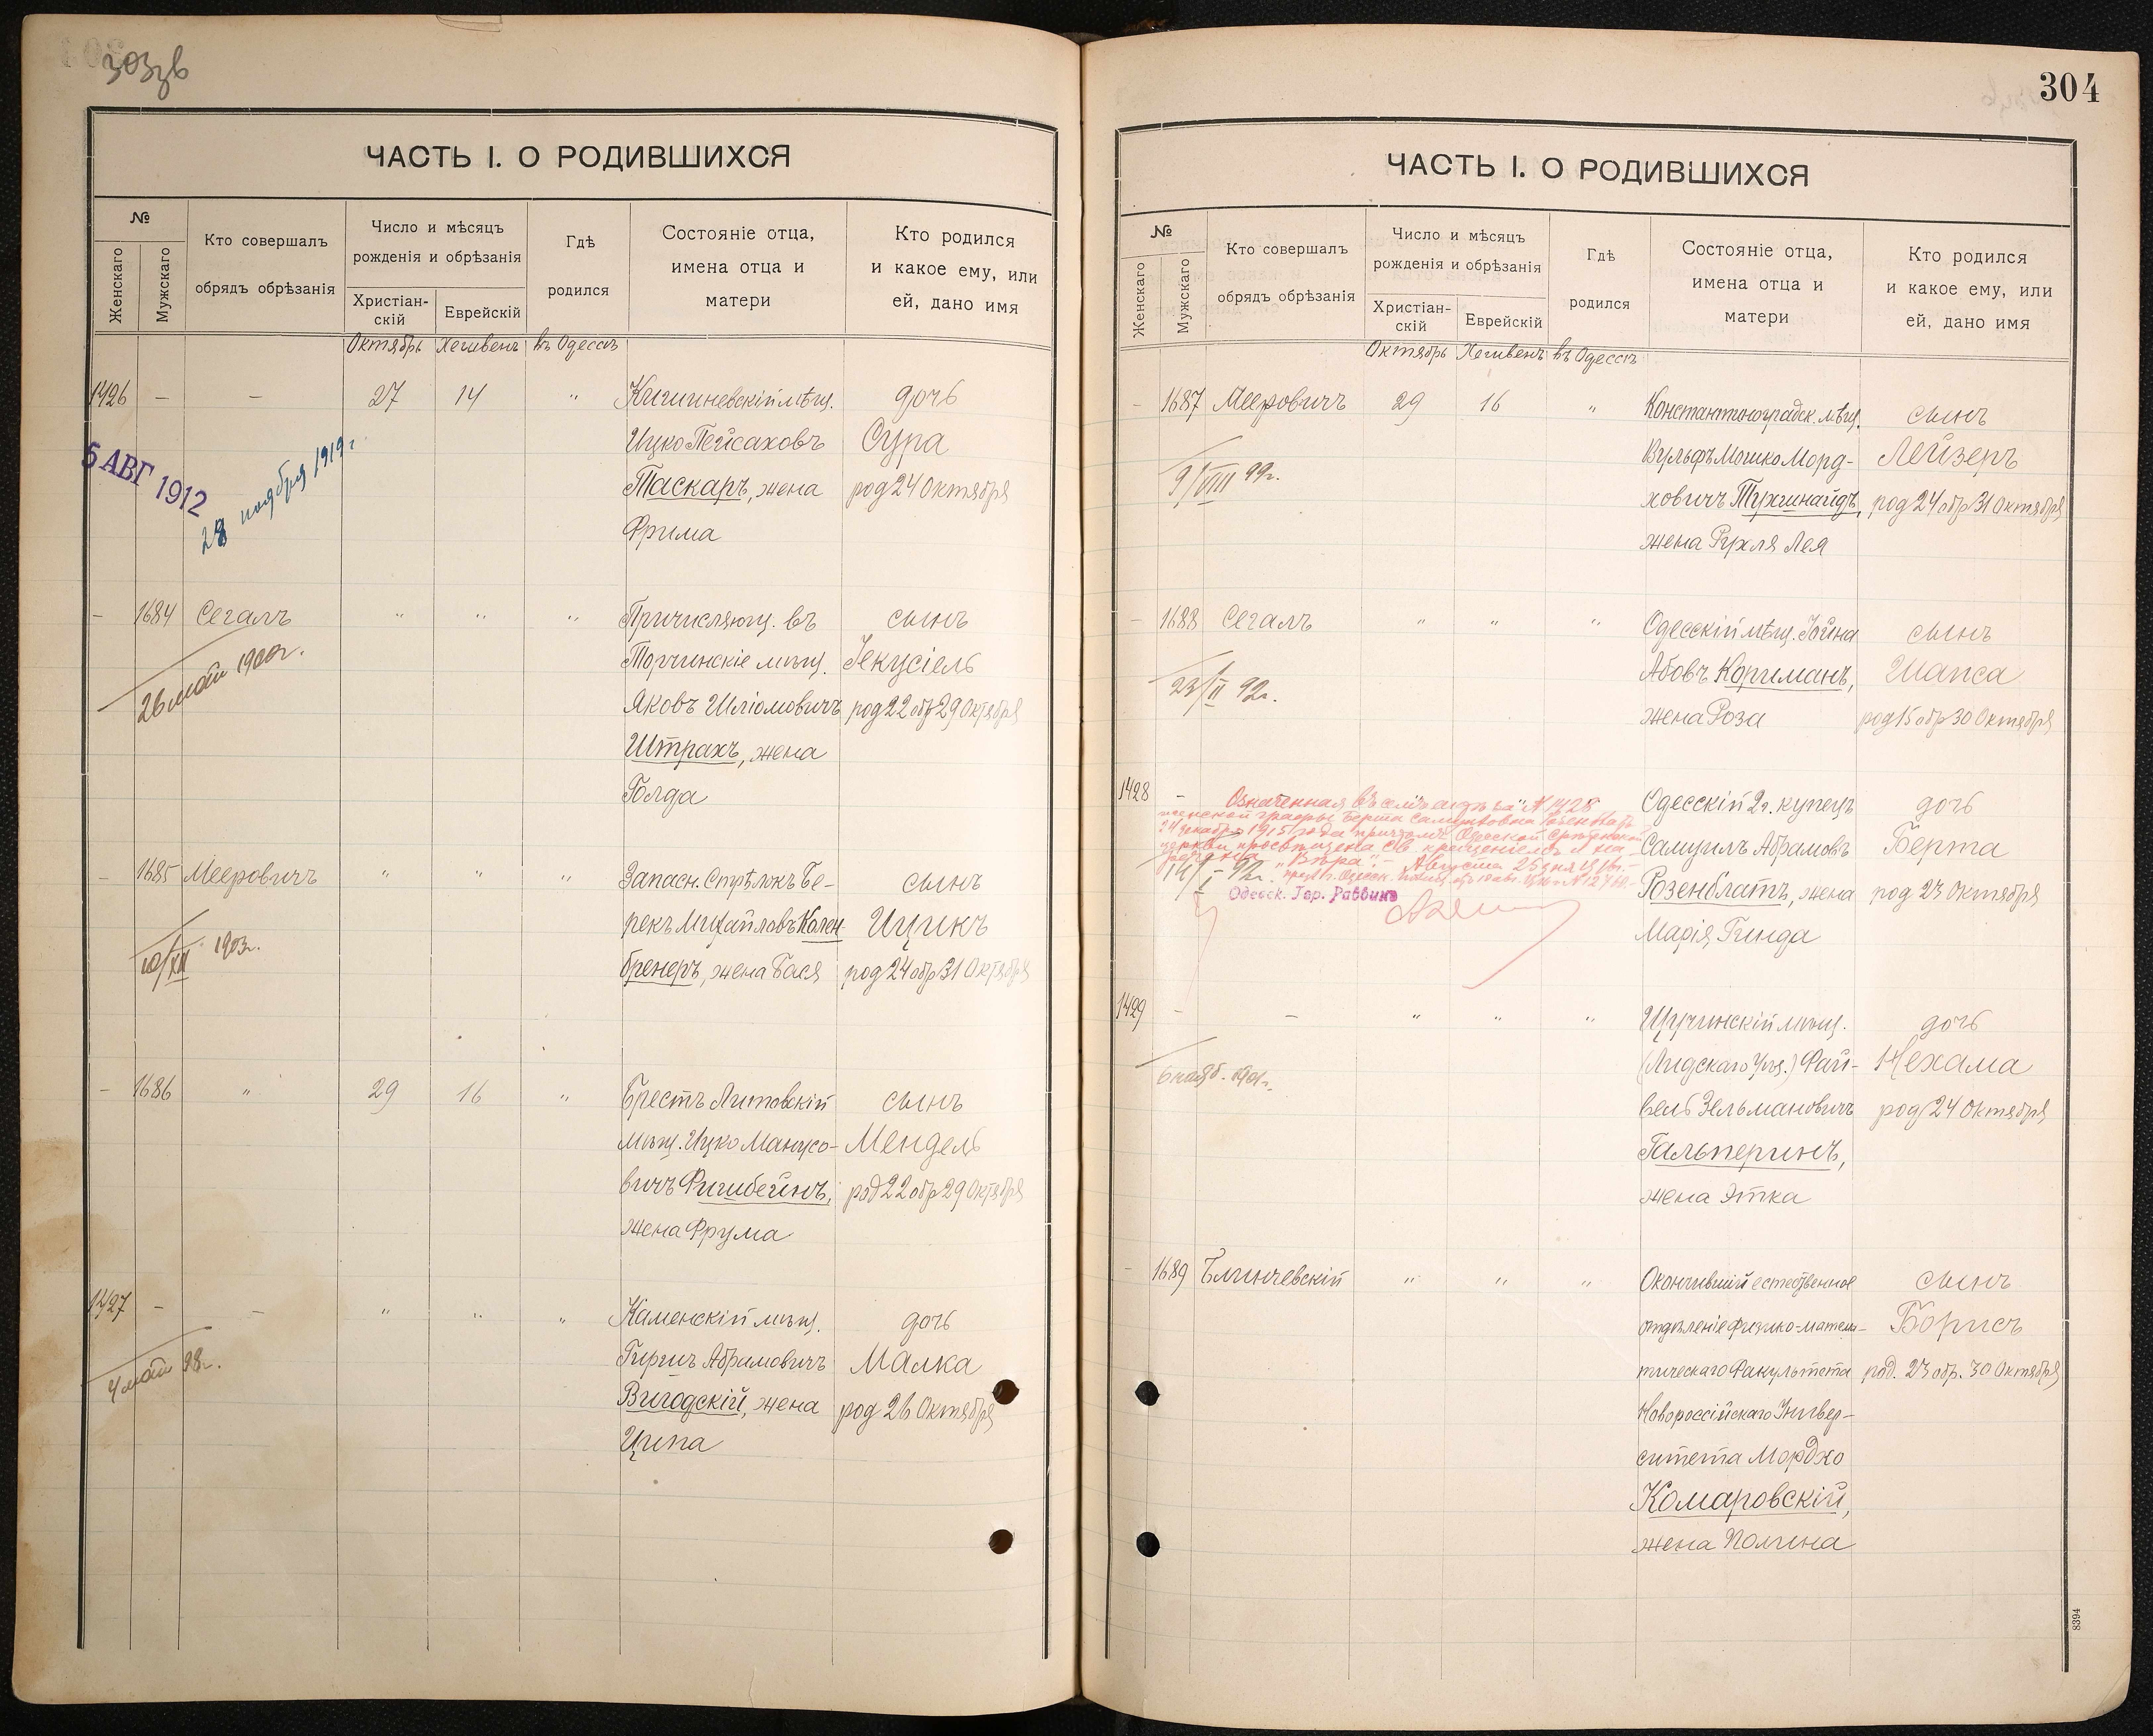 303 зв
ЧАСТЬ I. О РОДИВШИХСЯ
№
Женскаго
Мужскаго
Кто совершалъ
обрядъ обрѣзанія
Число и мѣсяцъ
рожденія и обрѣзанія
Христіан-
скій
Еврейскій
Гдѣ
родился
Состояніе отца,
имена отца и
матери
Кто родился
и какое ему, или
ей, дано имя
Октябрь Хешвенъ въ Одессѣ
1426 — — 27 14 " Кишиневскій мѣщ. дочь
Ицко Пейсаховъ Сура
Таскаръ, жена род 24 Октября
Фрима
5 АВГ 1912
28 ноября 1919 г
— 1684 Сегалъ " " " Причисляющ. въ сынъ
Торчинскіе мѣщ. Іекусіель
Яковъ Шліомовичъ род 22 обр 29 Октября
Штрахъ, жена
Голда
26 1900г.
— 1685 Мееровичъ " " " Запасн. Стрѣлокъ Бе- сынъ
рекъ Михайловъ Колен- Ицикъ
бренеръ, жена Бася род 24 обр 31 Октября
10/XII 1903г.
— 1686 " 29 16 " Брестъ Литовскій сынъ
мѣщ. Ицко Манусо- Мендель
вичъ Фишбейнъ, род 22 обр 29 Октября
жена Фрума
1427 — — " " " Каменскій мѣщ. дочь
Гиршъ Абрамовичъ Малка
Вигодскій, жена род 26 Октября
Ципа
4 98г.
304
ЧАСТЬ I. О РОДИВШИХСЯ
№
Женскаго
Мужскаго
Кто совершалъ
обрядъ обрѣзанія
Число и мѣсяцъ
рожденія и обрѣзанія
Христіан-
скій
Еврейскій
Гдѣ
родился
Состояніе отца,
имена отца и
матери
Кто родился
и какое ему, или
ей, дано имя
Октябрь Хешвенъ въ Одессѣ
— 1687 Мееровичъ 29 16 " Константиноградск. мѣщ. сынъ
Вульфъ Мошко Морд- Лейзеръ
ховичъ Тухшнайдъ, род 24 обр 31 Октября
жена Рухля Лея
9/VIII 99г.
— 1688 Сегалъ " " " Одесскій мѣщ. Іойна сынъ
Абовъ Коргманъ, Шапса
жена Роза род 15 обр 30 Октября
23/II 92г.
1428 — Одесскій 2г. купецъ дочь
Самуилъ Абрамовъ Берта
Розенблатъ, жена род 23 Октября
Марія Гинда
Означенная въ семъ актѣ за № 1428
женской графы Берта Самуиловна Розенблатъ
24 декабря 1915 года причтомъ Одесской Срѣтенской
церкви просвѣщена Св. крещеніемъ и на-
речена "Вѣра". — Августа 25 дня
14/I 92г.
Одесск. Гор. Раввинъ
1429 — — " " " Щучинскій мѣщ. дочь
(Лидскаго Уѣз.) Фай- Нехама
вель Зельмановичъ род 24 Октября
Гальперинъ,
жена Этка
6 нояб. 1901г.
— 1689 Блинчевскій " " " Окончившій естественное сынъ
отдѣленіе физико-матема- Борисъ
тическаго Факультета род. 23 обр. 30 Октября
Новороссійскаго Универ-
ситета Мордко
Комаровскій,
жена Полина
8394